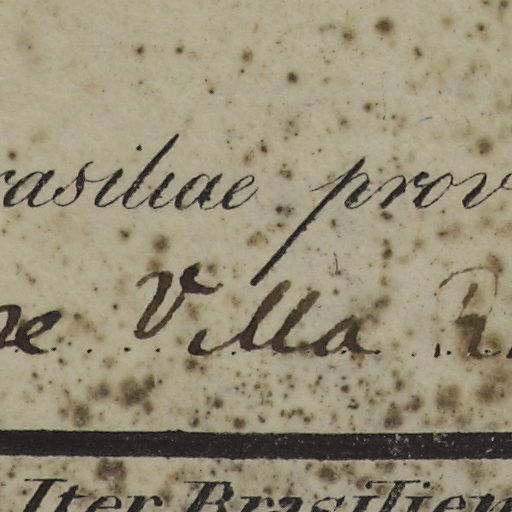 rasiliae prov
Villa R
Iter Brasilien